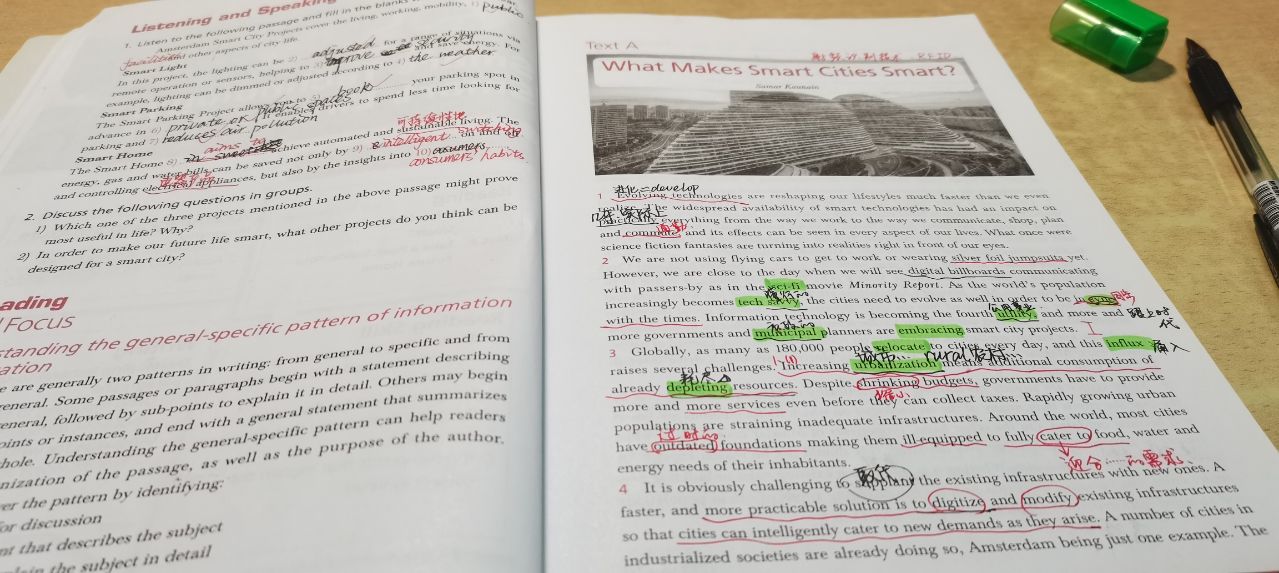 Listening and Speaking
1. Listen to the following passage and fill in the blanks
Amsterdam Smart City Projects cover the living, working, mobility, 1) public
facilities and other aspects of city life.
Smart Light
In this project, the lighting can be 2) adjusted for a range of situations via
remote operation or sensors, helping to 3) security and save energy. For
example, lighting can be dimmed or adjusted according to 4) the weather
Smart Parking
The Smart Parking Project allows you to 5) book your parking spot in
advance in 6) private or public spaces. It enables drivers to spend less time looking for
parking and 7) reduces air pollution
可持续性地
Smart Home
The Smart Home 8) aims to achieve automated and sustainable living. The
energy, gas and water bills can be saved not only by 9) intelligent switching on and off
and controlling electrical appliances, but also by the insights into 10) consumers' habits
2. Discuss the following questions in groups.
1) Which one of the three projects mentioned in the above passage might prove
most useful in life? Why?
2) In order to make our future life smart, what other projects do you think can be
designed for a smart city?
ading
Focus
standing the general-specific pattern of information
ation
e are generally two patterns in writing: from general to specific and from
eneral. Some passages or paragraphs begin with a statement describing
eneral, followed by sub-points to explain it in detail. Others may begin
oints or instances, and end with a general statement that summarizes
hole. Understanding the general-specific pattern can help readers
nization of the passage, as well as the purpose of the author.
er the pattern by identifying:
or discussion
nt that describes the subject
plain the subject in detail
Text A
射频识别技术 RFID
What Makes Smart Cities Smart?
Samar Kaunain
进化=develop
1 Evolving technologies are reshaping our lifestyles much faster than we even
realize. The widespread availability of smart technologies has had an impact on
practically everything from the way we work to the way we communicate, shop, plan
and commute, and its effects can be seen in every aspect of our lives. What once were
science fiction fantasies are turning into realities right in front of our eyes.
2 We are not using flying cars to get to work or wearing silver foil jumpsuits yet.
However, we are close to the day when we will see digital billboards communicating
with passers-by as in the sci-fi movie Minority Report. As the world's population
increasingly becomes tech savvy, the cities need to evolve as well in order to be in sync
with the times. Information technology is becoming the fourth utility, and more and
跟上时代
more governments and municipal planners are embracing smart city projects.
3 Globally, as many as 180,000 people relocate to cities every day, and this influx
涌入
raises several challenges. Increasing urbanization means additional consumption of
already depleting resources. Despite shrinking budgets, governments have to provide
more and more services even before they can collect taxes. Rapidly growing urban
populations are straining inadequate infrastructures. Around the world, most cities
过时的
have outdated foundations making them ill-equipped to fully cater to food, water and
energy needs of their inhabitants.
迎合……的需求
取代
4 It is obviously challenging to supplant the existing infrastructures with new ones. A
faster, and more practicable solution is to digitize and modify existing infrastructures
so that cities can intelligently cater to new demands as they arise. A number of cities in
industrialized societies are already doing so, Amsterdam being just one example. The